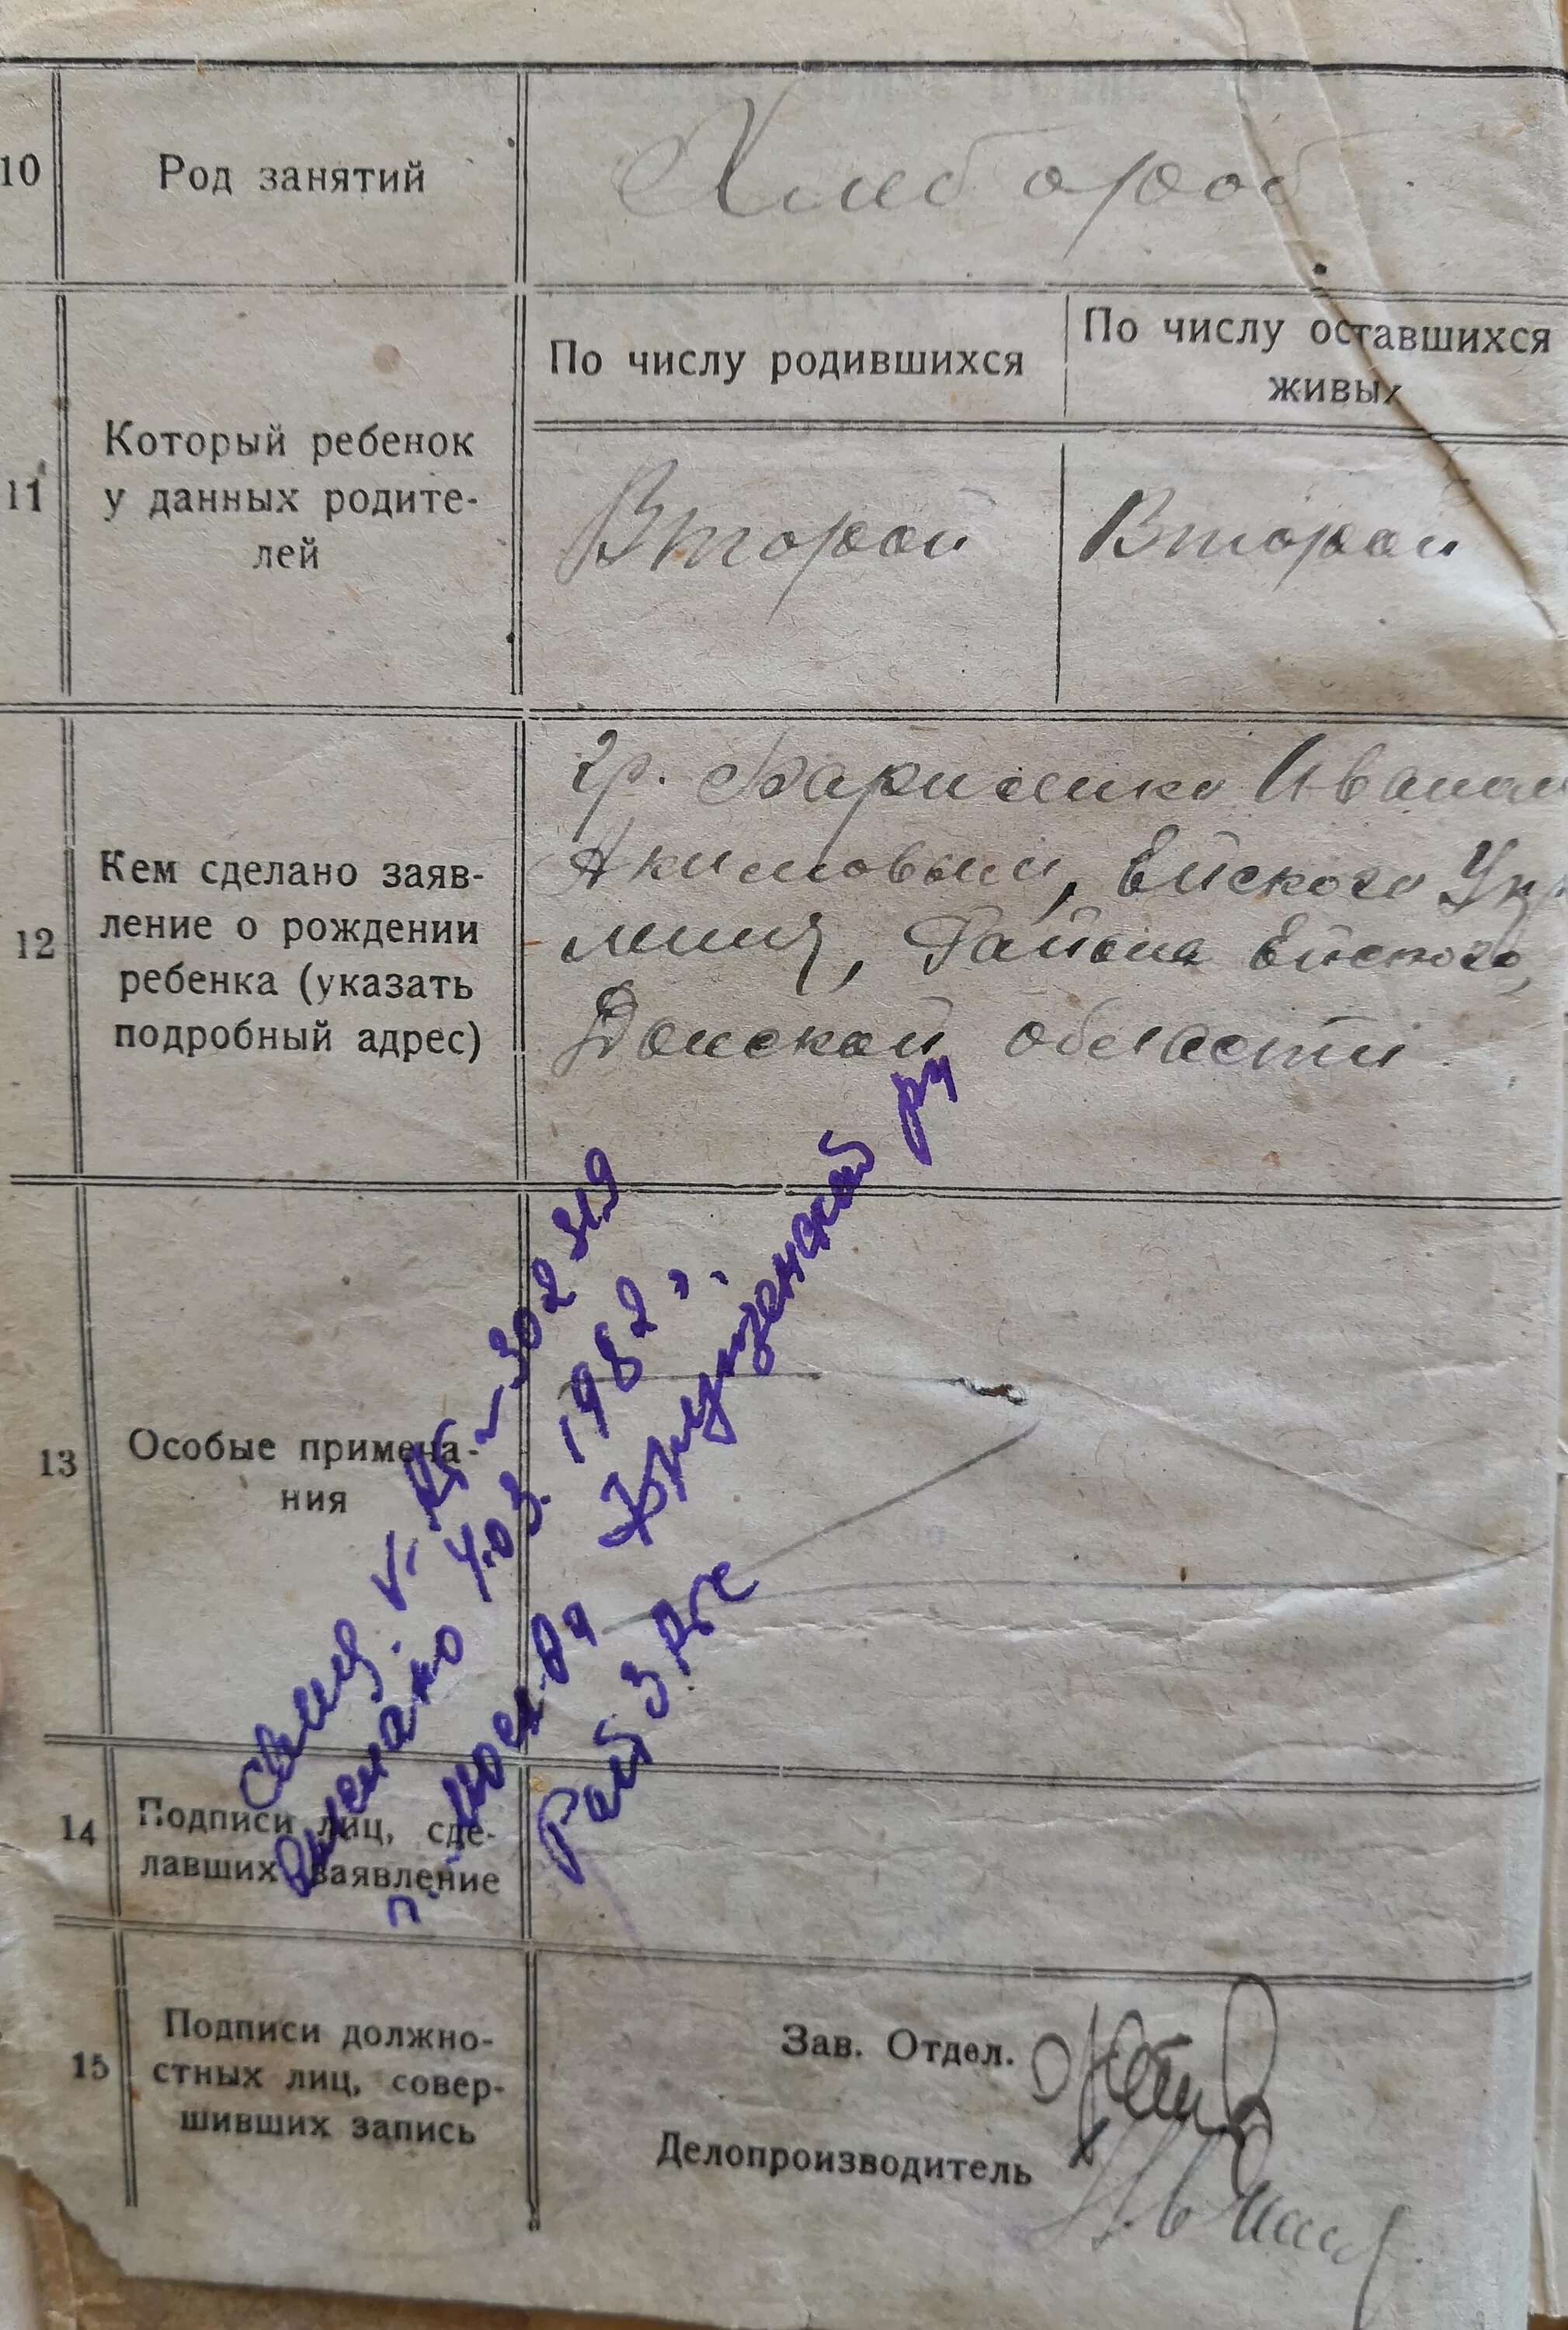 10
Род занятий
Хлебороб
11
Который ребенок
у данных родите-
лей
По числу родившихся
По числу оставшихся
живых
Второй
Второй
12
Кем сделано заяв-
ление о рождении
ребенка (указать
подробный адрес)
гр. Иваном
Акимовым, Ейского Укр
района Ейского,
Донской области
13
Особые примеча-
ния
свид. V-АГ-302319
выслано 4.03. 1982 г.
п. Москва
Фрунзенский р-н
Рай ЗАГС
14
Подписи лиц, сде-
лавших заявление
15
Подписи должно-
стных лиц, совер-
шивших запись
Зав. Отдел.
Делопроизводитель